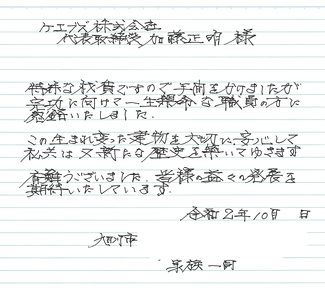 ケエブズ株式会社
代表取締役 加藤正明 様
特殊な材質ですので手間をかけましたが
完功に向けて一生懸命な職員の方に
感銘いたしました。
この生まれ変った建物を大切に、安心して
私共は又新たな歴史を築いてゆきます
有難うございました。皆様の益々の発展を
期待いたしています。
令和2年10月 日
旭市
家族一同